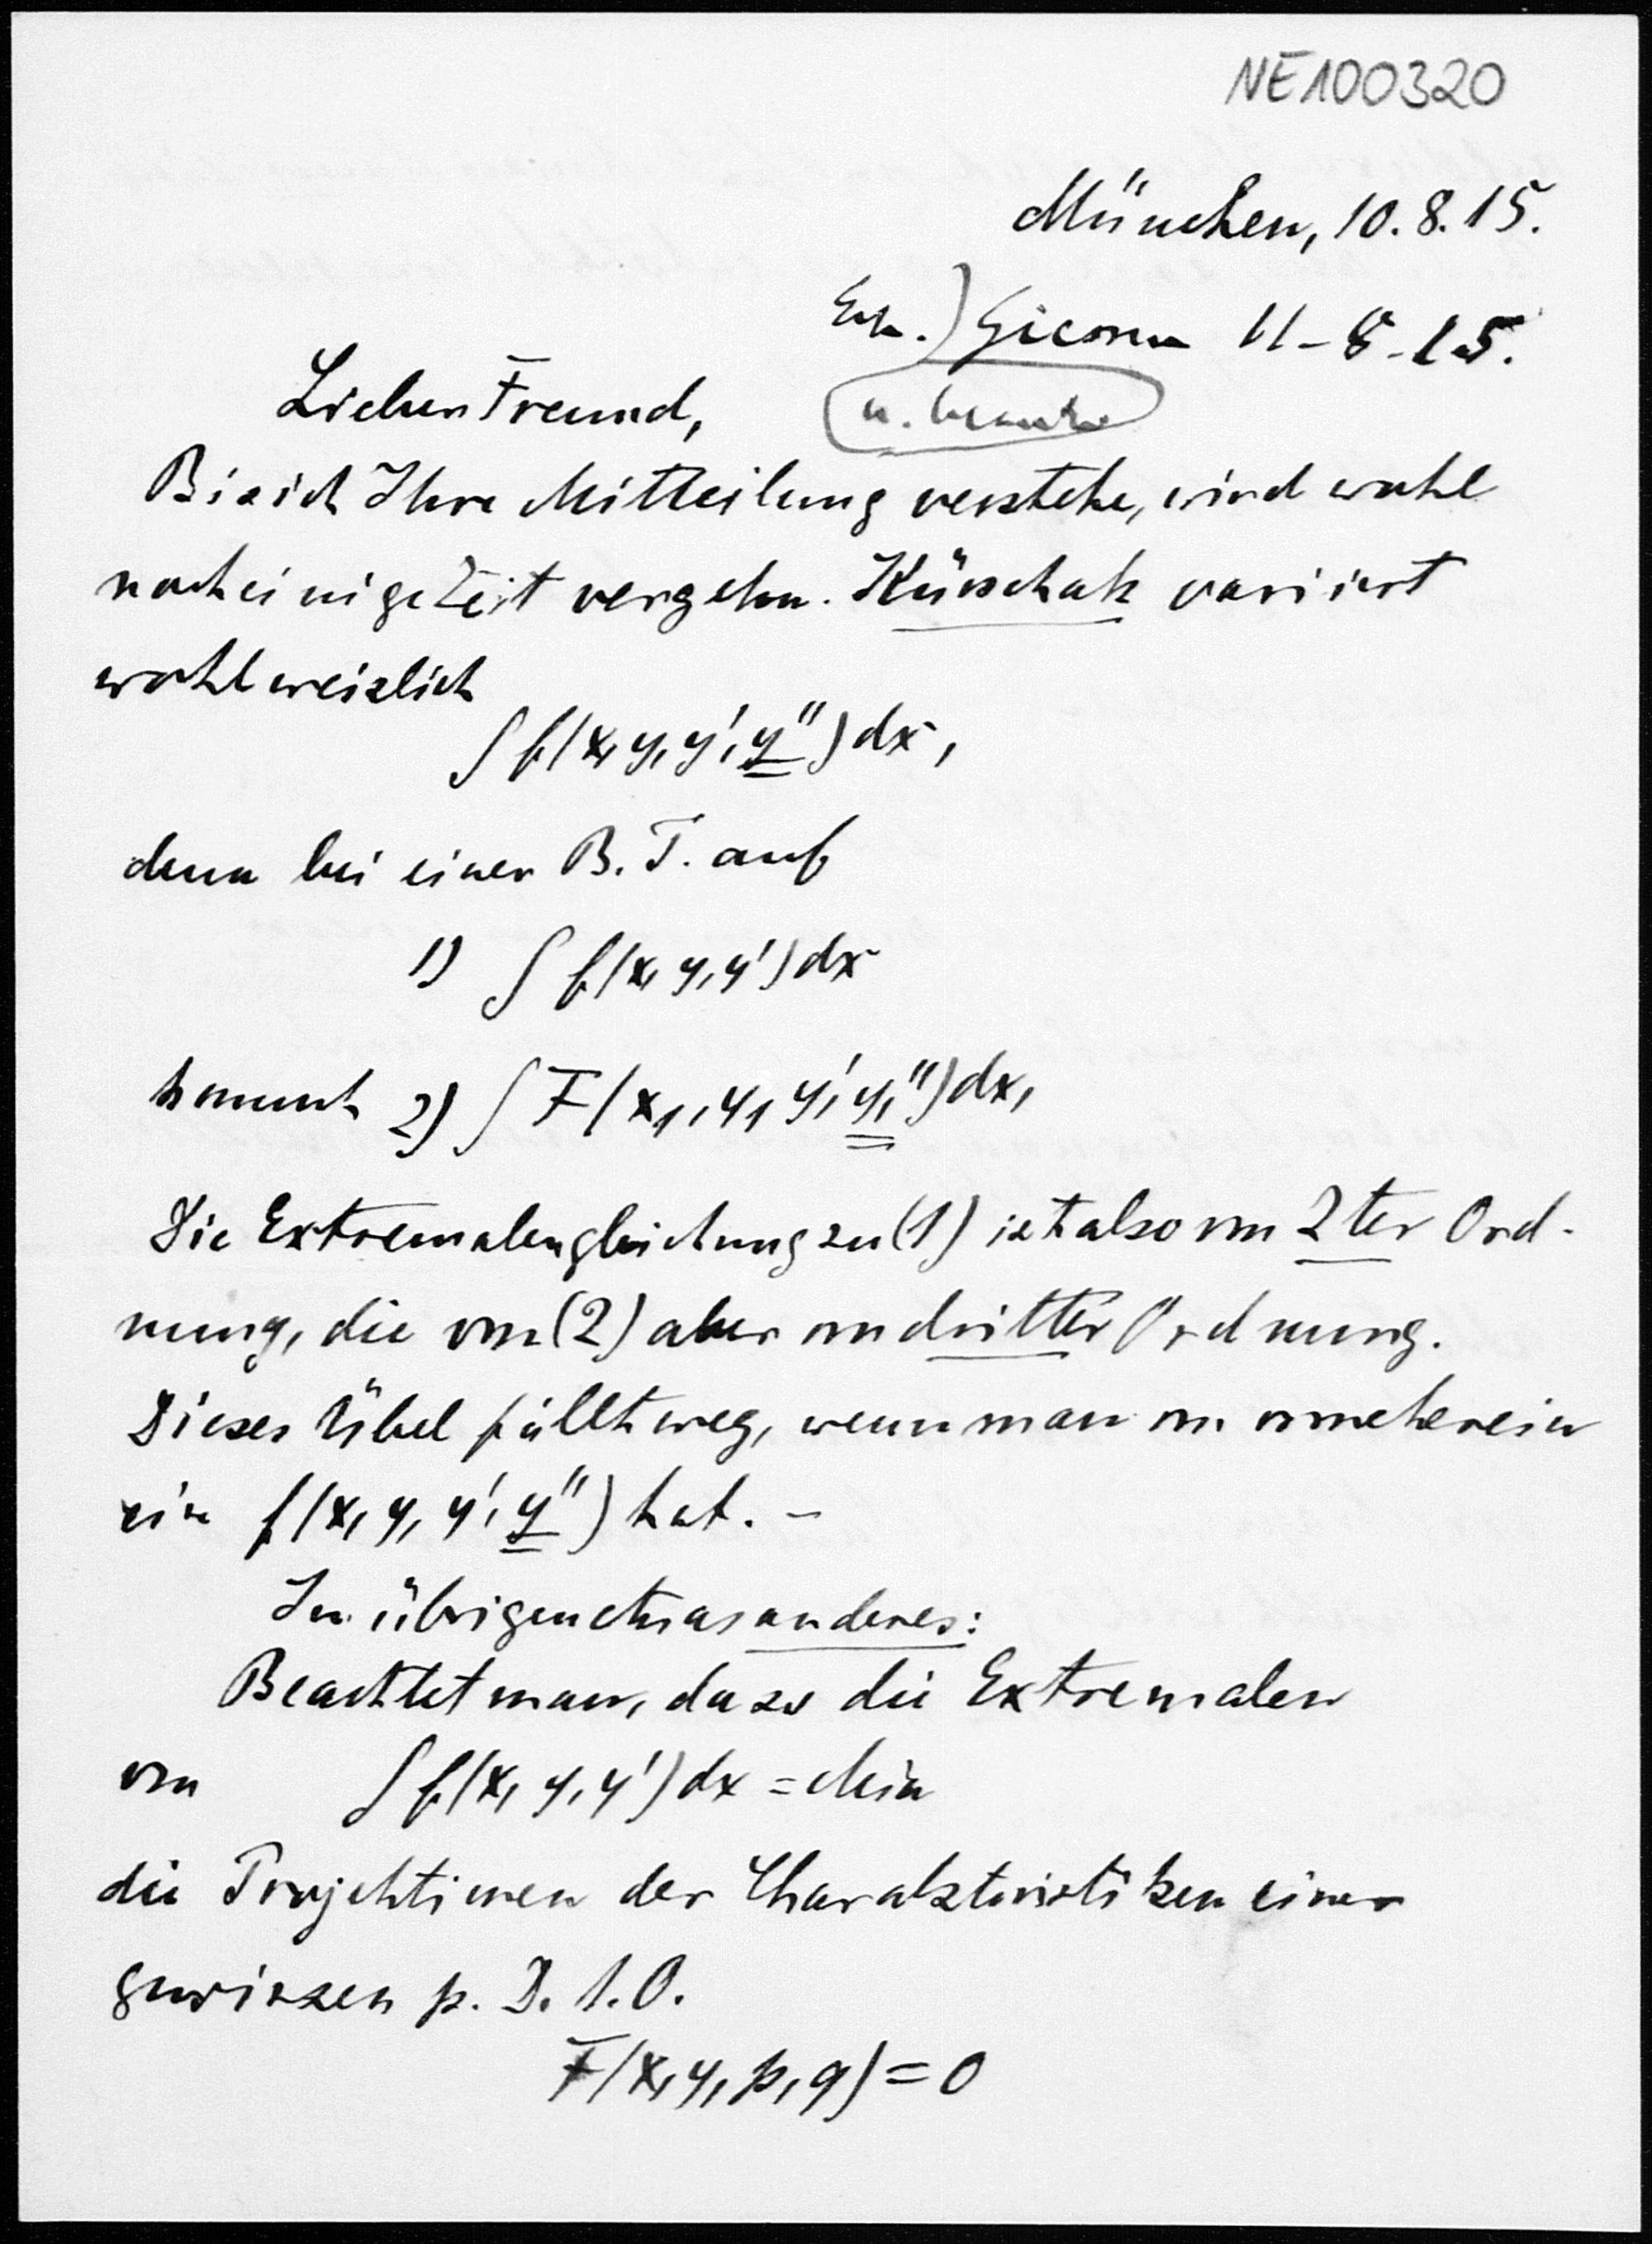 NE100320
München, 10.8.15.
11-8-15.
Lieber Freund,
Bis ich Ihre Mitteilung verstehe, wird wohl
noch einige Zeit vergehn. Kürschak variiert
wohlweislich
∫ f(x, y, y', y'') dx,
denn bei einer B. T. auf
1) ∫ f(x, y, y') dx
kommt 2) ∫ F(x₁, y₁, y₁', y₁'') dx₁
Die Extremalengleichung zu (1) ist also von 2ter Ord-
nung, die von (2) aber von dritter Ordnung.
Dieses Übel fällt weg, wenn man von vorneherein
ein f(x, y, y', y'') hat. –
Im übrigen etwas anderes:
Beachtet man, dass die Extremalen
von ∫ f(x, y, y') dx = Min
die Projektionen der Charakteristiken einer
gewissen p. D. 1. O.
F(x, y, p, q) = 0